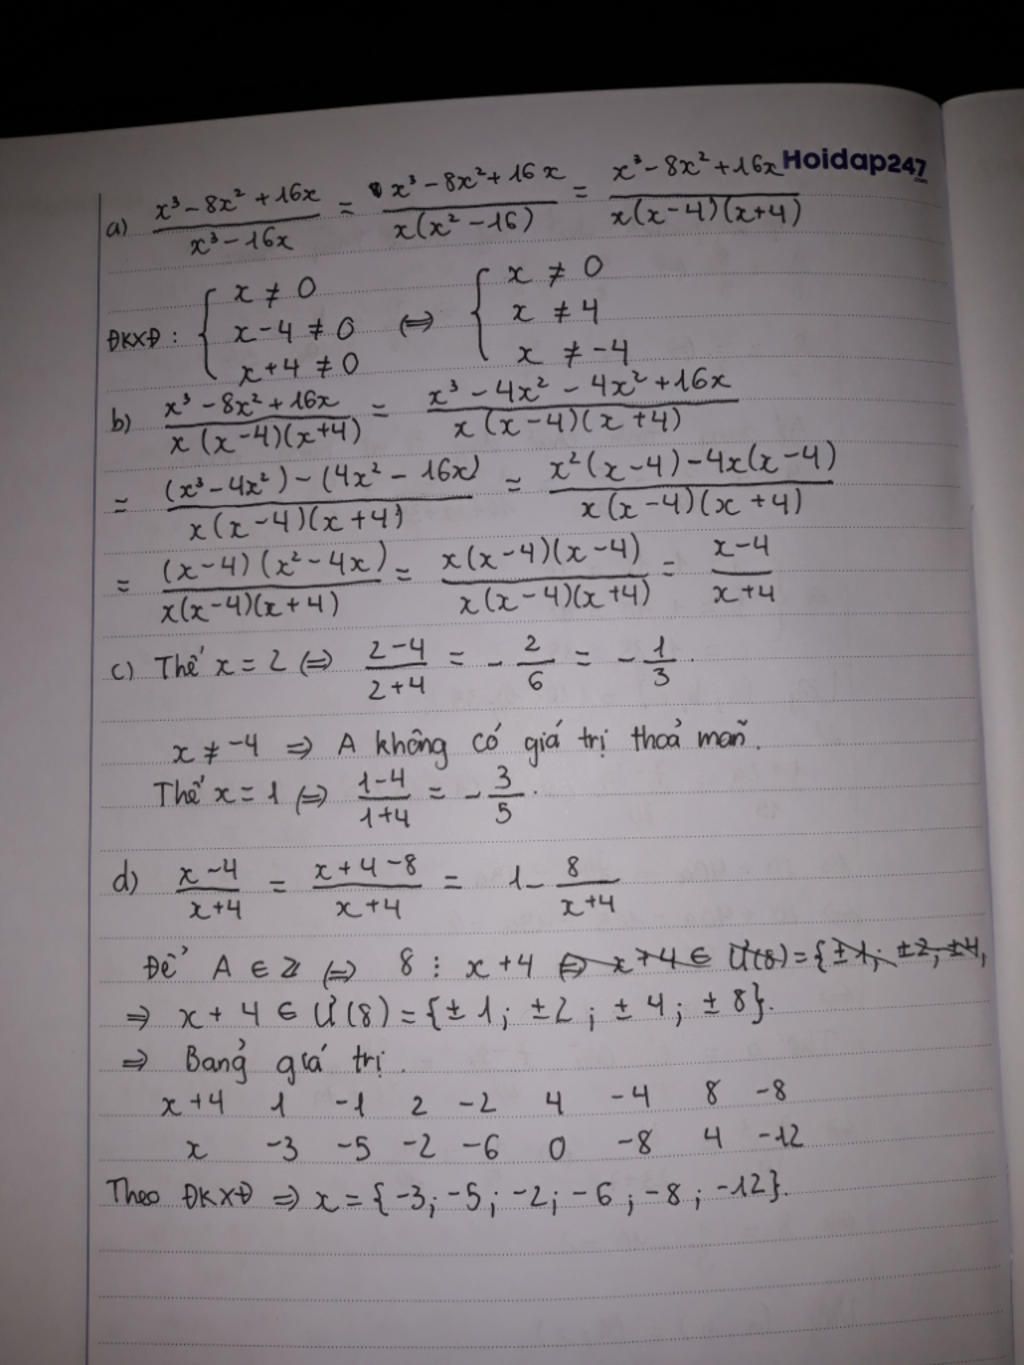 Hoidap247.com
a) (x³ - 8x² + 16x)/(x³ - 16x) = (x³ - 8x² + 16x)/(x(x² - 16)) = (x³ - 8x² + 16x)/(x(x-4)(x+4))
ĐKXĐ: { x ≠ 0 ; x - 4 ≠ 0 ; x + 4 ≠ 0 ⇔ { x ≠ 0 ; x ≠ 4 ; x ≠ -4
b) (x³ - 8x² + 16x)/(x(x-4)(x+4)) = (x³ - 4x² - 4x² + 16x)/(x(x-4)(x+4))
= ((x³ - 4x²) - (4x² - 16x))/(x(x-4)(x+4)) = (x²(x-4) - 4x(x-4))/(x(x-4)(x+4))
= ((x-4)(x² - 4x))/(x(x-4)(x+4)) = (x(x-4)(x-4))/(x(x-4)(x+4)) = (x-4)/(x+4)
c) Thế x = 2 ⇔ (2-4)/(2+4) = -2/6 = -1/3.
x ≠ -4 ⇒ A không có giá trị thoả mãn.
Thế x = 1 ⇔ (1-4)/(1+4) = -3/5.
d) (x-4)/(x+4) = (x+4-8)/(x+4) = 1 - 8/(x+4)
Để A ∈ Z ⇔ 8 ⋮ x+4 ⇔ x+4 ∈ Ư(8) = {±1; ±2; ±4,
⇒ x + 4 ∈ Ư(8) = {±1; ±2; ±4; ±8}.
⇒ Bảng giá trị.
x+4 1 -1 2 -2 4 -4 8 -8
x -3 -5 -2 -6 0 -8 4 -12
Theo ĐKXĐ ⇒ x = {-3; -5; -2; -6; -8; -12}.